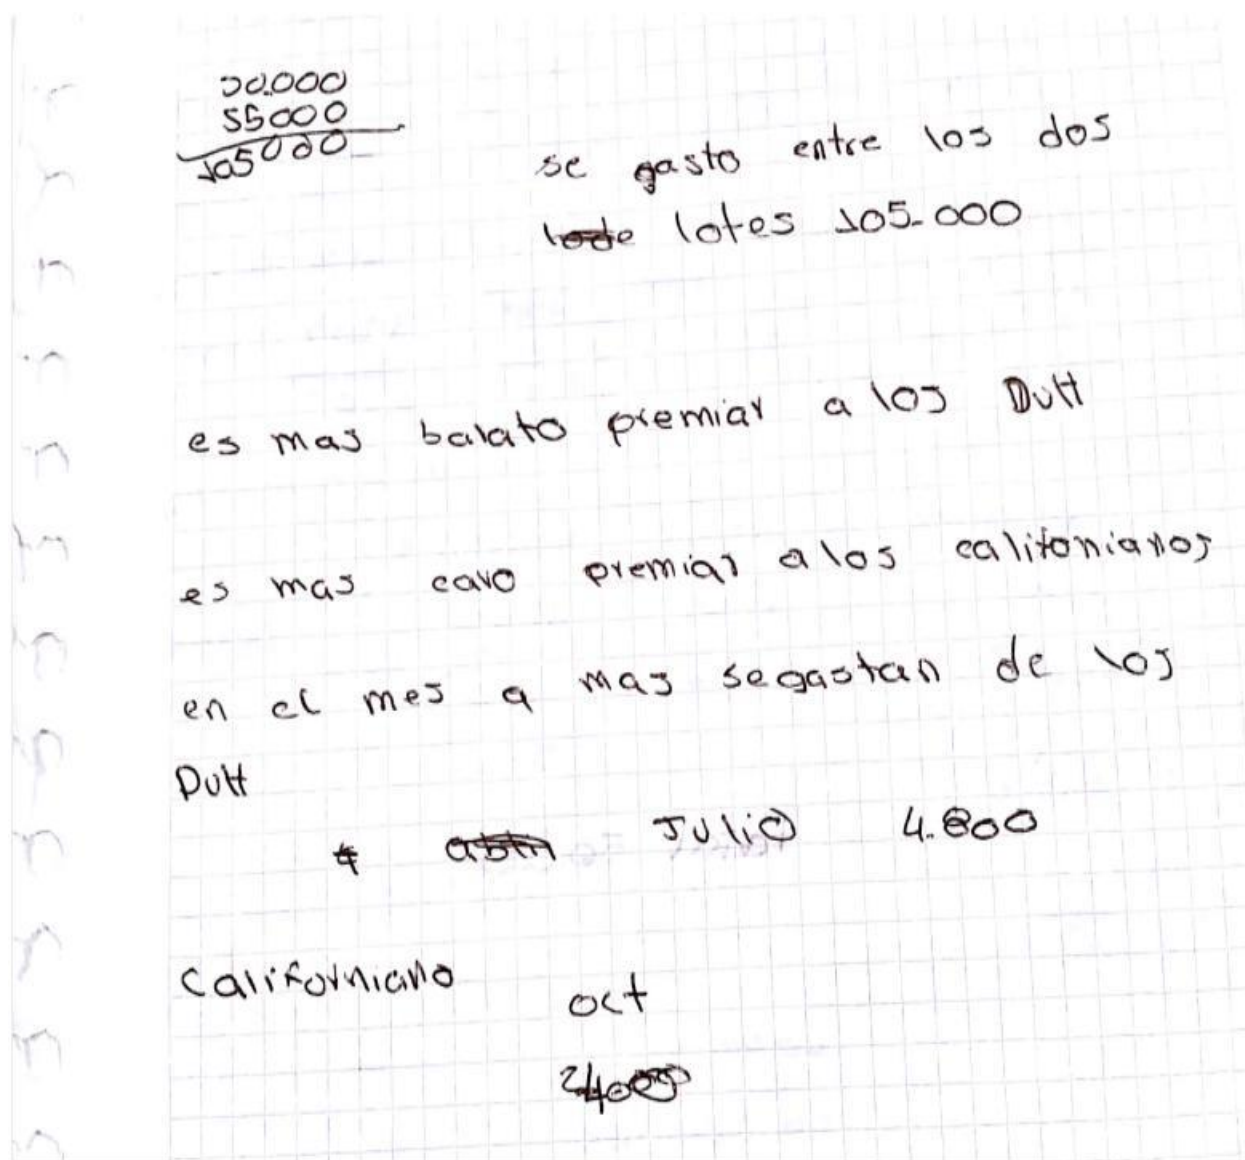 50.000
55000
105000
se gasto entre los dos
lotes 105.000
es mas balato premiar a los Dutt
es mas caro premiar a los califonianos
en el mes q mas segastan de los
Dutt
Julio 4.800
Californiano
oct